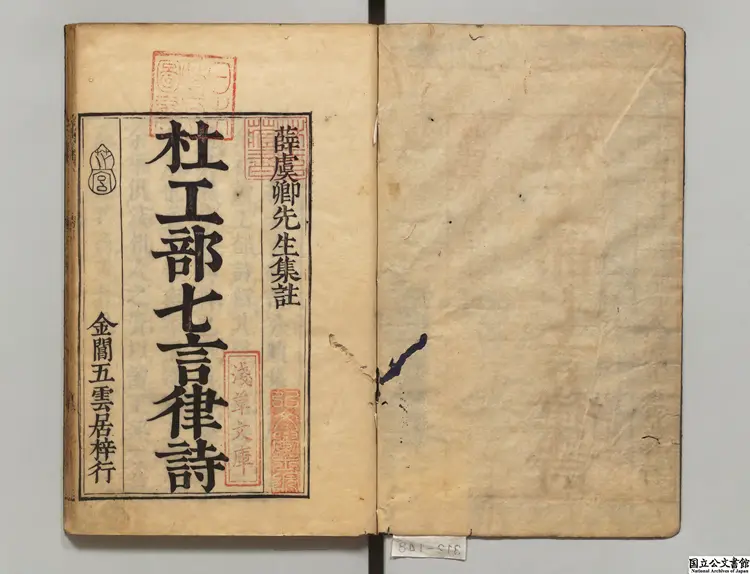 薛虞卿先生集註
杜工部七言律詩
金閶五雲居梓行
淺草文庫
国立公文書館
National Archives of Japan